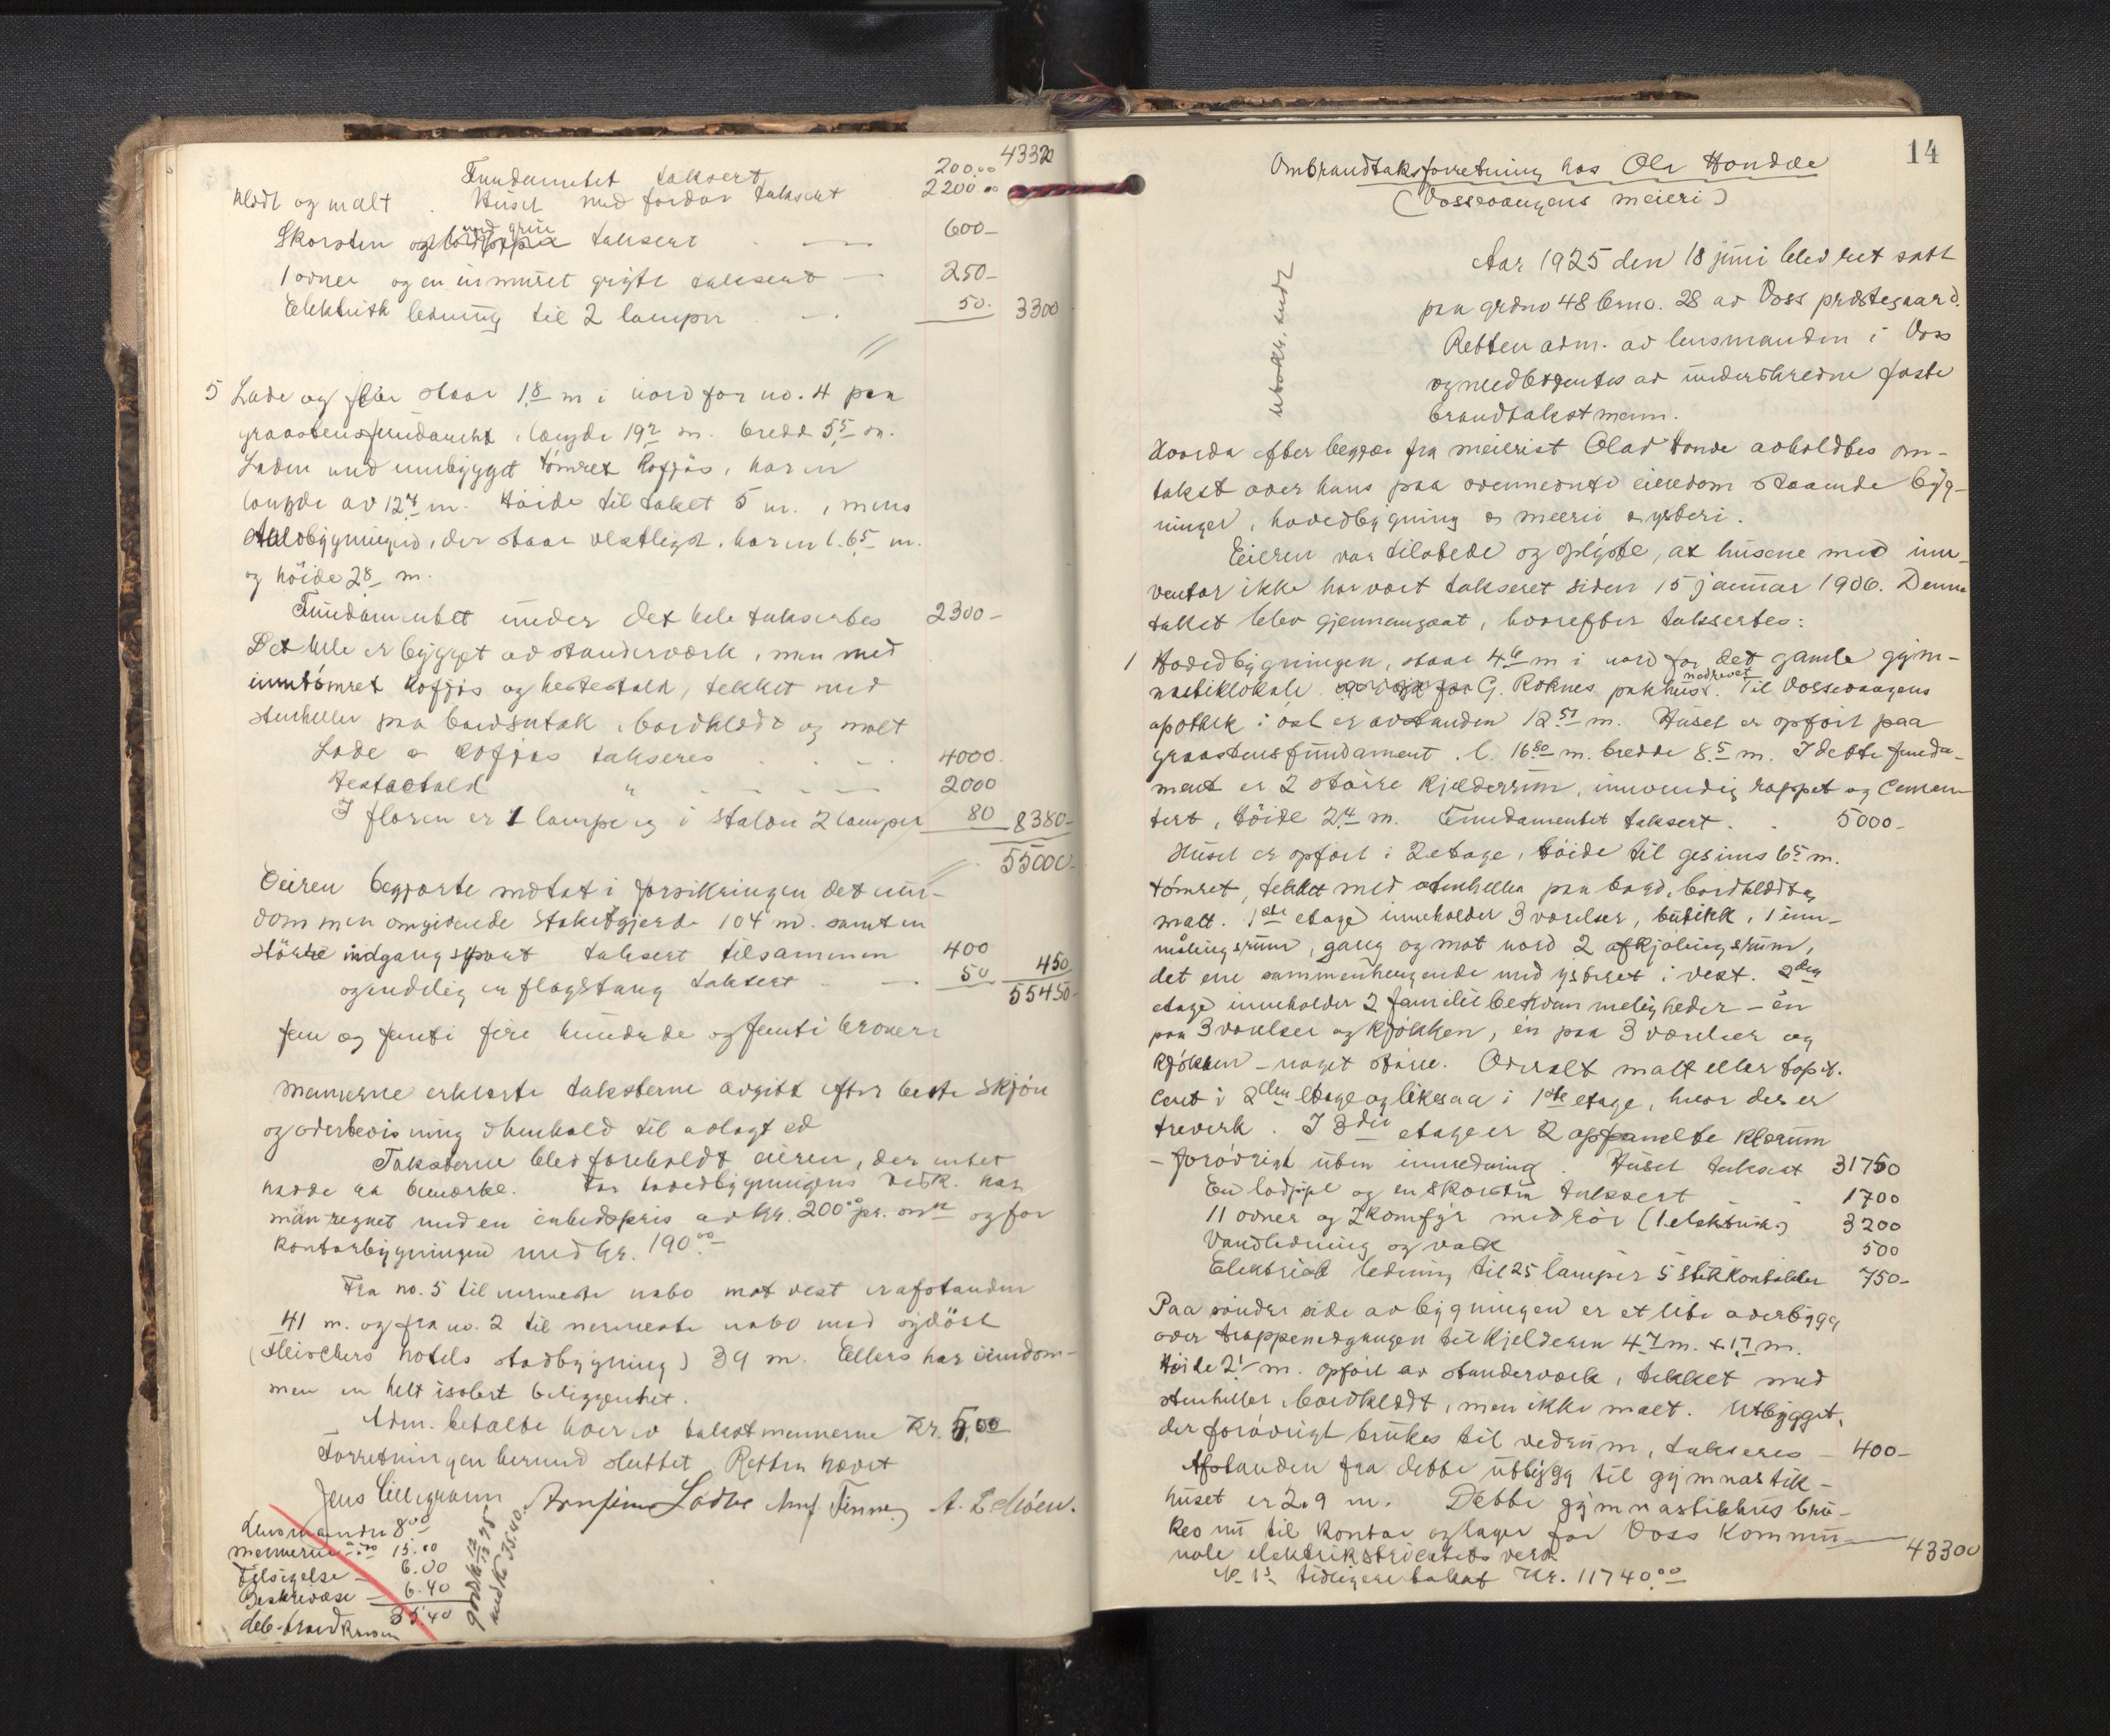 43320
Fundamentet taksert 200.00
klædt og malt. Huset med fordør taksert 2200.00
Skorsten og med grue taksert 600-
1 ovner og en inmuret gryte taksert 250-
Elektrisk ledning til 2 lamper 50. 3300
5 Lade og flor staar 18 m i nord for no. 4 paa
graastensfundament, længde 19 2 m. bredd 5 5 m.
Laden med innbygget tømret kofjøs, har en
længde av 12 7 m. Høide til taket 5 m., mens
staldbygningen, der staar vestligst, har en l. 6 5 m.
og höide 2 8 m.
Fundamentet under det hele takseres 2300-
Det hele er bygget av standerværk, men med
inntømret kofjøs og hestestald, tekket med
stenheller paa bordsutak, bordklædt og malt
Lade og kofjøs takseres 4000.
Hestestald " 2000
I floren er 1 lampe og i stalden 2 lamper 80 8380-
55000-
Eieren begjærte mottat i forsikringen det eien-
dommen omgivende stakitgjerde 104 m. samt en
større indgangsport taksert tilsammen 400
og endelig en flagstang taksert 50 450
55450-
fem og femti fire hundrede og femti kroner
Mennene erklærte taksterne avgitt efter beste skjøn
og overbevisning i henhold til avlagt ed
Taksterne blev foreholdt eieren, der intet
hadde at bemerke. For hovedbygningens vedk. har
man regnet med en enhetspris av kr. 200.00 pr. m2 og for
kontorbygningen med kr. 190.00
Fra no. 5 til nermeste nabo mot vest er afstanden
41 m. og fra no. 2 til nermeste nabo mod sydöst
(Fleischers hotels stadbygning) 39 m. Ellers har eiendom-
men en helt isolert beliggenhet.
Adm. betalte hver av takstmennerne Kr. 5,00
Forretningen hermed sluttet. Retten hævet
Jens Lillegraven A. L. Möen.
Lensmanden 8.00
Mennerne 15.00
Tilsigelse - 6.00
Beskrivelse - 6.40
35.40
deb. brandkassen
godskr.
med kr. 35.40.
14
Ombrandtaksforretning hos Ola Hondle
(Vossevangens meieri)
Utskr. sendt
Aar 1925 den 18 juni blev ret satt
paa grdno 48 brno. 28 av Voss prestegaard.
Retten adm. av lensmanden i Voss
og medbetjentes av underskrevne faste
brandtakstmenn.
Hvorda efter begjær fra meierist Olav Honde avholdtes om-
takst over hans paa ovennevnte eiendom staaende byg-
ninger, hovedbygning og meeri og ysteri.
Eieren var tilstede og oplyste, at husene med inn-
ventar ikke har vært taksert siden 15 januar 1906. Denne
takst blev gjennemgaat, hvorefter taksertes:
1 Hovedbygningen, staar 4 6 m i nord for det gamle gym-
nastiklokale G. Roknes pakhus nedrevet. Til Vossevangens
apothek i öst er avstanden 12 51 m. Huset er opført paa
graastensfundament. l. 16 80 m. bredde 8 5 m. I dette funda-
ment er 2 større kjelderrum, innvendig rappet og cemen-
tert, höide 2,4 m. Fundamentet taksert. 5000-
Huset er opført i 2 etage, höide til gesims 6 5 m.
tømret, tekket med stenheller paa bord, bordklædt og
malt. 1ste etage inneholder 3 værelser, butikk, 1 inn-
målingsrum, gang og mot nord 2 afkjølingsrum,
det ene sammenhengende med ysteriet i vest. 2den
etage inneholder 2 familiebekvemmeligheder - én
paa 3 værelser og kjøkken, én paa 3 værelser og
kjøkken - noget större. Overalt malt eller tapet-
cert i 2den etage og likesaa i 1ste etage, hvor der er
treverk. I 3die etage er 2 oppanelte klærum
- forøvrigt uten innredning. Huset taksert 31750
En lodpipe og en skorstein taksert 1700
11 ovner og 2 komfyr med rör (1 elektrisk) 3200
Vandledning og vask 500
Elektrisk ledning til 25 lamper 5 stikkontakter 750-
Paa søndre side av bygningen er et lite overbygg
over trappenedgangen til kjelderen 4 7 m. x 1 7 m.
Höide 2 1 m. opført av standerværk, tekket med
stenheller, bordklædt, men ikke malt. Utbygget,
der forøvrigt brukes til vedrum, takseres - 400-
Afstanden fra dette utbygg til gymnastik-
huset er 2.9 m. Dette gymnastikhus bru-
kes nu til kontor og lager for Voss kommu-
nale elektrikstricitets verk 43300
No 1s tidligere takst Kr. 11740.00